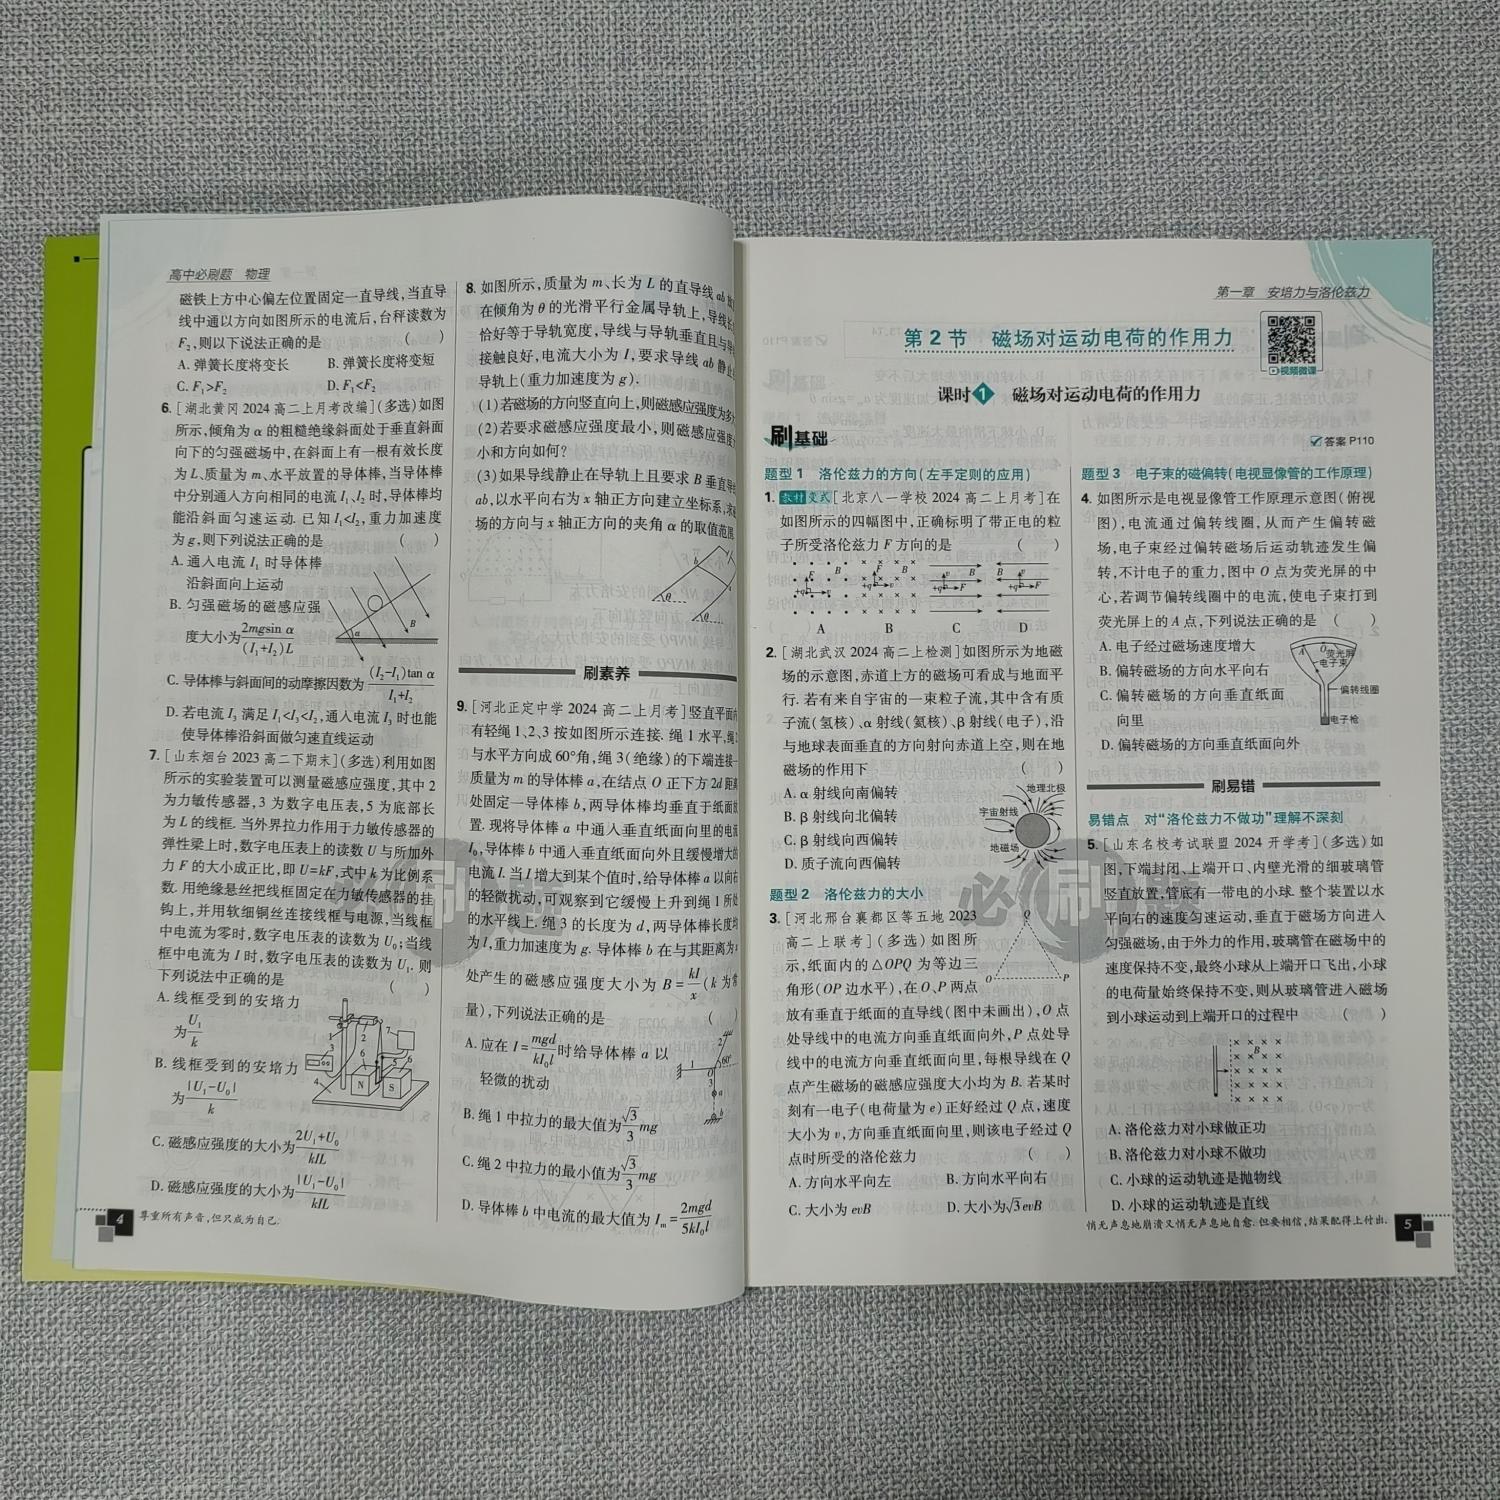 高中必刷题 物理
磁铁上方中心偏左位置固定一直导线,当直导
线中通以方向如图所示的电流后,台秤读数为
F₂,则以下说法正确的是 ( )
A. 弹簧长度将变长 B. 弹簧长度将变短
C. F₁>F₂ D. F₁<F₂
6. [湖北黄冈2024高二上月考改编](多选)如图
所示,倾角为α的粗糙绝缘斜面处于垂直斜面
向下的匀强磁场中,在斜面上有一根有效长度
为L、质量为m、水平放置的导体棒,当导体棒
中分别通入方向相同的电流I₁、I₂时,导体棒均
能沿斜面匀速运动. 已知I₁<I₂,重力加速度
为g,则下列说法正确的是 ( )
A. 通入电流I₁时导体棒
沿斜面向上运动
B. 匀强磁场的磁感应强
度大小为2mgsin α/(I₁+I₂)L
C. 导体棒与斜面间的动摩擦因数为(I₂-I₁)tan α/I₁+I₂
D. 若电流I₃满足I₁<I₃<I₂,通入电流I₃时也能
使导体棒沿斜面做匀速直线运动
α
B
7. [山东烟台2023高二下期末](多选)利用如图
所示的实验装置可以测量磁感应强度,其中2
为力敏传感器,3为数字电压表,5为底部长
为L的线框. 当外界拉力作用于力敏传感器的
弹性梁上时,数字电压表上的读数U与所加外
力F的大小成正比,即U=kF,式中k为比例系
数. 用绝缘悬丝把线框固定在力敏传感器的挂
钩上,并用软细铜丝连接线框与电源,当线框
中电流为零时,数字电压表的读数为U₀;当线
框中电流为I时,数字电压表的读数为U₁. 则
下列说法中正确的是 ( )
A. 线框受到的安培力
为U₁/k
B. 线框受到的安培力
为|U₁-U₀|/k
C. 磁感应强度的大小为2U₁+U₀/kIL
D. 磁感应强度的大小为|U₁-U₀|/kIL
N S
4 尊重所有声音,但只成为自己.
8. 如图所示,质量为m、长为L的直导线ab
在倾角为θ的光滑平行金属导轨上,导线
恰好等于导轨宽度,导线与导轨垂直且与导
接触良好,电流大小为I,要求导线ab静止
导轨上(重力加速度为g).
(1)若磁场的方向竖直向上,则磁感应强度为多
(2)若要求磁感应强度最小,则磁感应强度
小和方向如何?
(3)如果导线静止在导轨上且要求B垂直导
ab,以水平向右为x轴正方向建立坐标系,求
场的方向与x轴正方向的夹角α的取值范围.
b
θ
θ
刷素养
9. [河北正定中学2024高二上月考]竖直平面
有轻绳1、2、3按如图所示连接. 绳1水平,绳
与水平方向成60°角,绳3(绝缘)的下端连接一
质量为m的导体棒a,在结点O正下方2d距
处固定一导体棒b,两导体棒均垂直于纸面
置. 现将导体棒a中通入垂直纸面向里的电
I₀,导体棒b中通入垂直纸面向外且缓慢增大的
电流I. 当I增大到某个值时,给导体棒a以向右
的轻微扰动,可观察到它缓慢上升到绳1所处
的水平线上. 绳3的长度为d,两导体棒长度均
为l,重力加速度为g. 导体棒b在与其距离为x
处产生的磁感应强度大小为B=kI/x(k为常
量),下列说法正确的是 ( )
A. 应在I=mgd/kI₀l时给导体棒a以
轻微的扰动
B. 绳1中拉力的最大值为√3/3mg
C. 绳2中拉力的最小值为√3/3mg
D. 导体棒b中电流的最大值为Iₘ=2mgd/5kI₀l
60°
第一章 安培力与洛伦兹力
第2节 磁场对运动电荷的作用力
视频微课
课时1 磁场对运动电荷的作用力
刷基础
答案P110
题型1 洛伦兹力的方向(左手定则的应用)
1. 教材变式[北京八一学校2024高二上月考]在
如图所示的四幅图中,正确标明了带正电的粒
子所受洛伦兹力F方向的是 ( )
A B C D
2. [湖北武汉2024高二上检测]如图所示为地磁
场的示意图,赤道上方的磁场可看成与地面平
行. 若有来自宇宙的一束粒子流,其中含有质
子流(氢核)、α射线(氦核)、β射线(电子),沿
与地球表面垂直的方向射向赤道上空,则在地
磁场的作用下 ( )
A. α射线向南偏转
B. β射线向北偏转
C. β射线向西偏转
D. 质子流向西偏转
地理北极
宇宙射线
地磁场
题型2 洛伦兹力的大小
3. [河北邢台襄都区等五地2023
高二上联考](多选)如图所
示,纸面内的△OPQ为等边三
角形(OP边水平),在O、P两点
放有垂直于纸面的直导线(图中未画出),O点
处导线中的电流方向垂直纸面向外,P点处导
线中的电流方向垂直纸面向里,每根导线在Q
点产生磁场的磁感应强度大小均为B. 若某时
刻有一电子(电荷量为e)正好经过Q点,速度
大小为v,方向垂直纸面向里,则该电子经过Q
点时所受的洛伦兹力 ( )
A. 方向水平向左 B. 方向水平向右
C. 大小为evB D. 大小为√3evB
Q
O P
题型3 电子束的磁偏转(电视显像管的工作原理)
4. 如图所示是电视显像管工作原理示意图(俯视
图),电流通过偏转线圈,从而产生偏转磁
场,电子束经过偏转磁场后运动轨迹发生偏
转,不计电子的重力,图中O点为荧光屏的中
心,若调节偏转线圈中的电流,使电子束打到
荧光屏上的A点,下列说法正确的是 ( )
A. 电子经过磁场速度增大
B. 偏转磁场的方向水平向右
C. 偏转磁场的方向垂直纸面
向里
D. 偏转磁场的方向垂直纸面向外
A O
荧光屏
电子束
偏转线圈
电子枪
刷易错
易错点 对“洛伦兹力不做功”理解不深刻
5. [山东名校考试联盟2024开学考](多选)如
图,下端封闭、上端开口、内壁光滑的细玻璃管
竖直放置,管底有一带电的小球. 整个装置以水
平向右的速度匀速运动,垂直于磁场方向进入
匀强磁场,由于外力的作用,玻璃管在磁场中的
速度保持不变,最终小球从上端开口飞出,小球
的电荷量始终保持不变,则从玻璃管进入磁场
到小球运动到上端开口的过程中 )
B
A. 洛伦兹力对小球做正功
B. 洛伦兹力对小球不做功
C. 小球的运动轨迹是抛物线
D. 小球的运动轨迹是直线
悄无声息地崩溃又悄无声息地自愈. 但要相信,结果配得上付出. 5
必刷题
必刷题